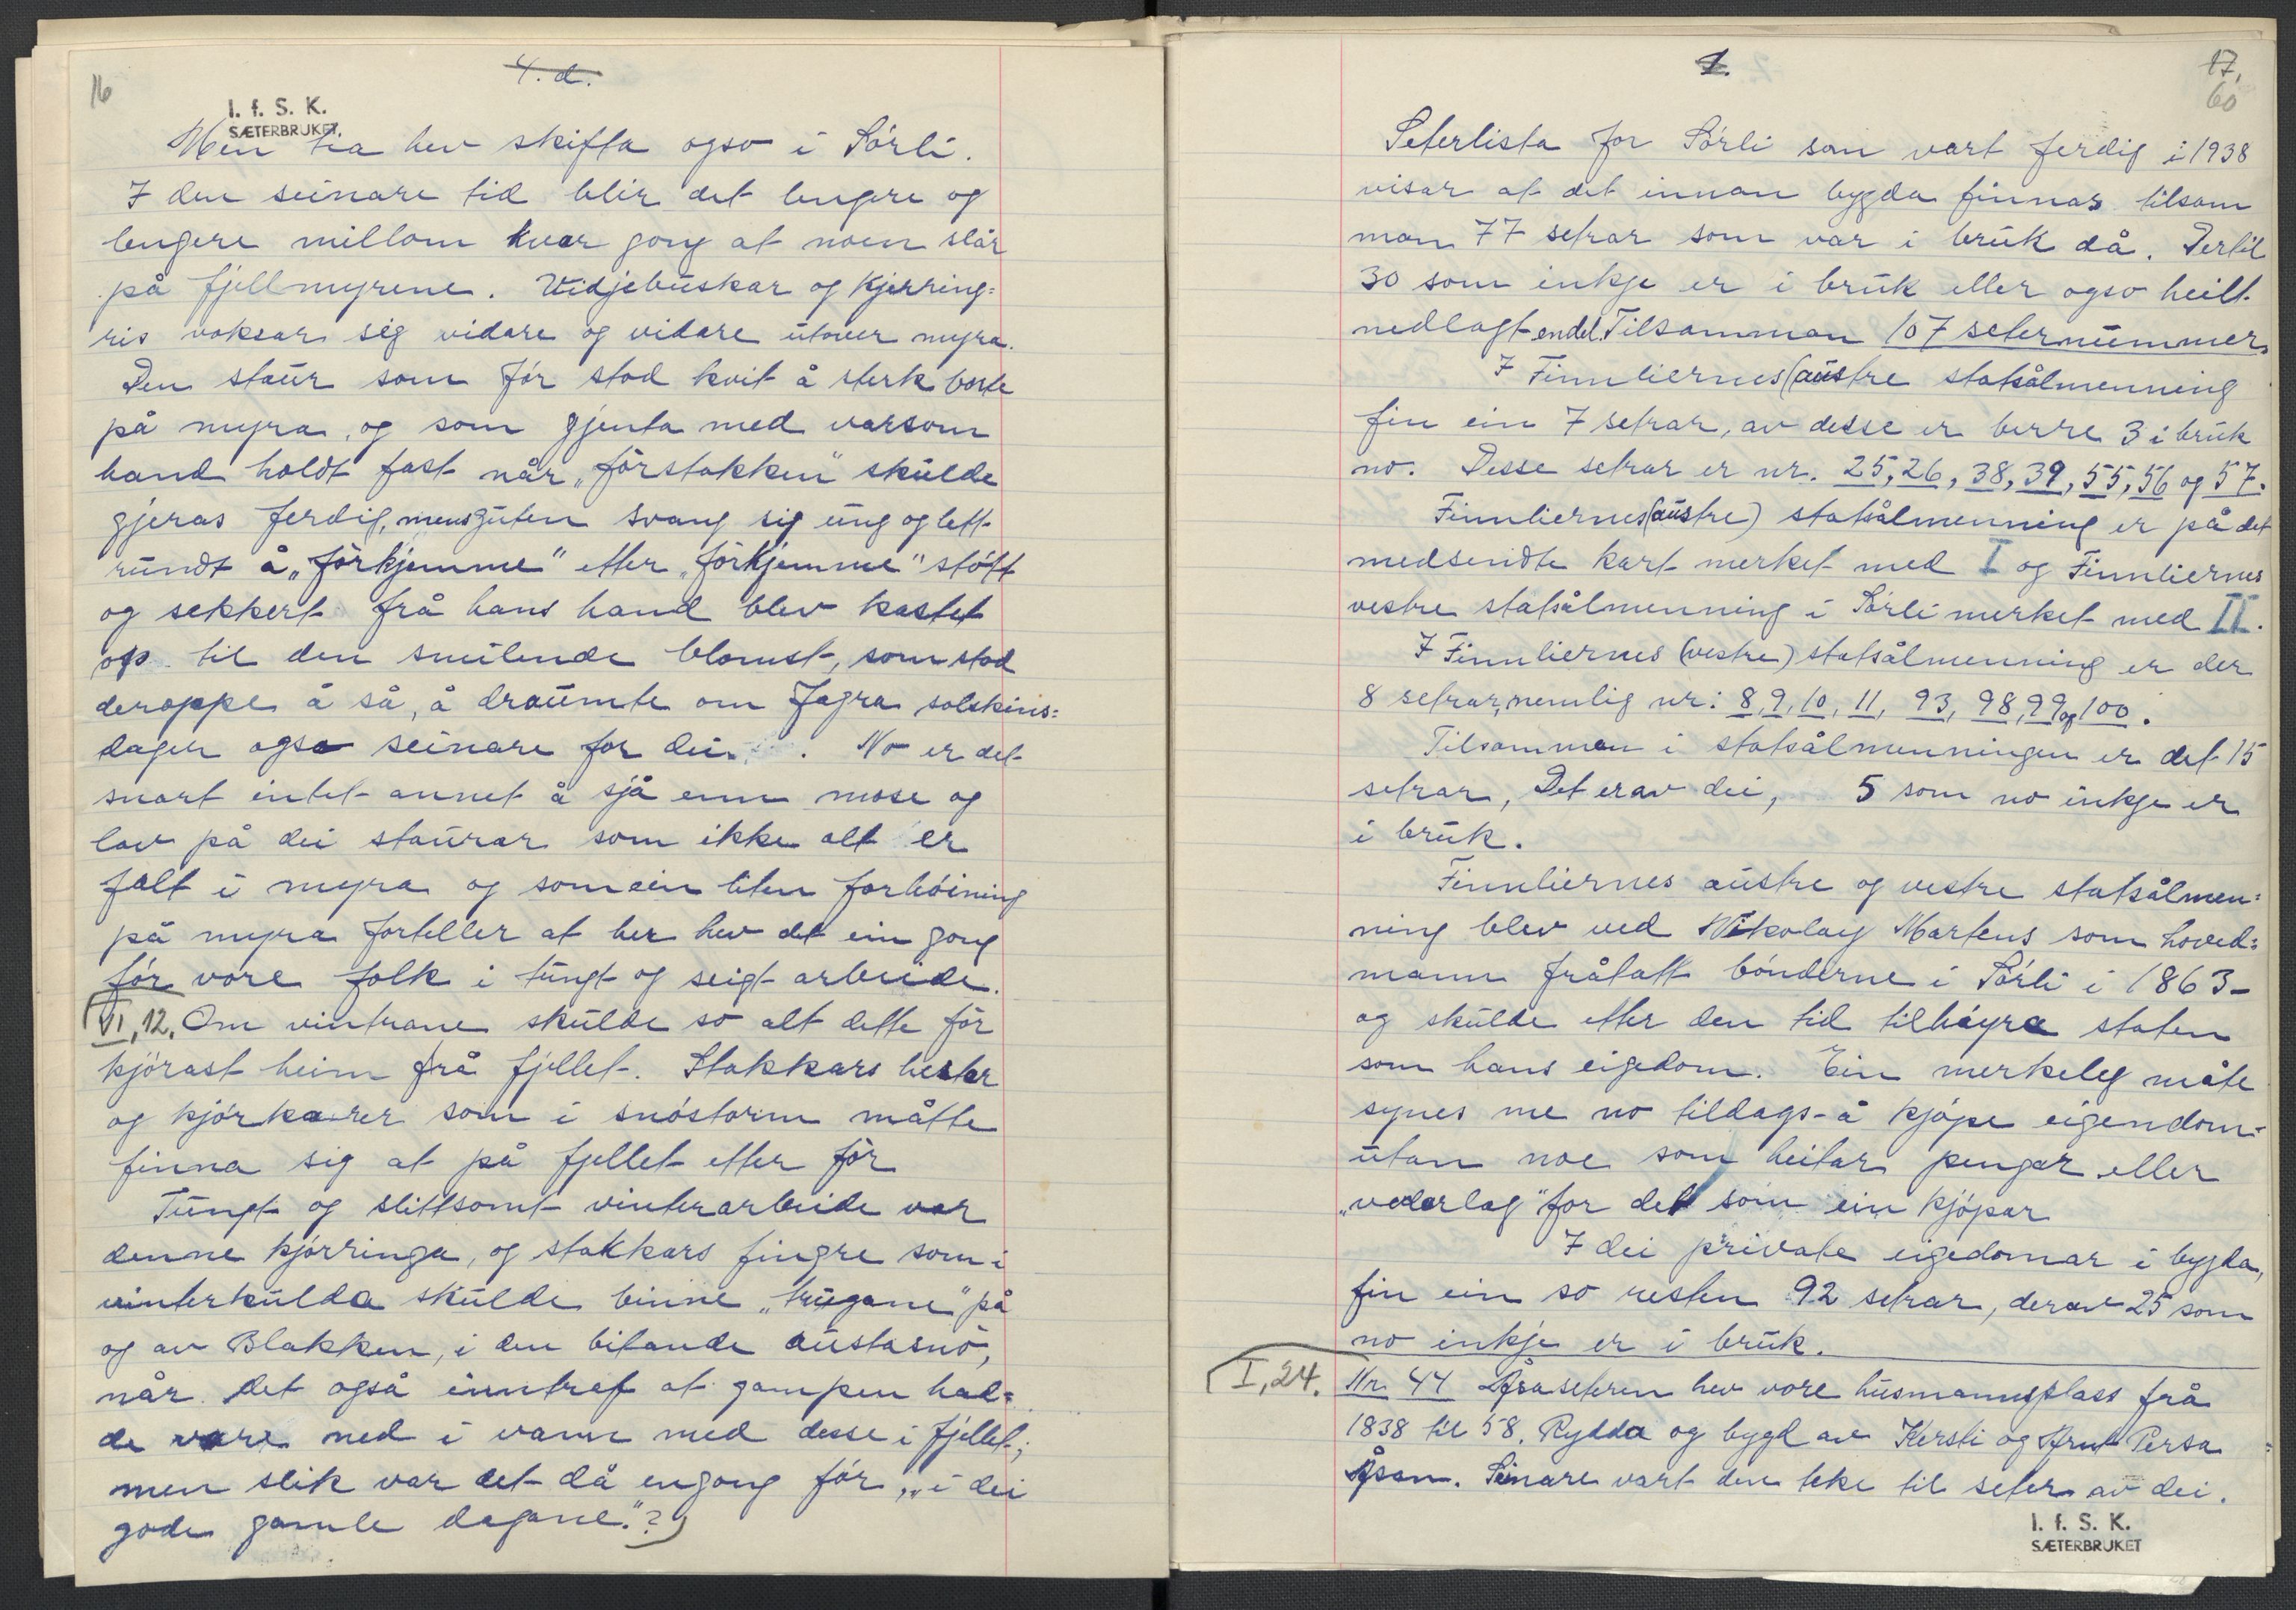 16
4. d.
I. f. S. K.
SÆTERBRUKET.
Men tia hev skifta ogso i Sórli.
I den seinare tid blir det lengere og
lengere millom kvar gong at noen slår
på fjellmyrene. Vidjebuskar og kjerring=
ris voksar sig vidare og vidare utover myra.
Den staur som fór stod kvit å sterk borte
på myra, og som gjenta med varsom
hand holdt fast når „fórstakken" skulde
gjeras ferdig, mens guten svang sig ung og lett
rundt å „fórkjemme" etter „fórkjemme" stótt
og sekkert frå hans hand blev kastet
op til den smilende blomst, som stod
deroppe å så, å draumte om fagra solskins=
dager ogso seinare for dei. No er det
snart intet annet å sjå enn mose og
lav på dei staurar som ikke alt er
falt i myra og som ein liten forhóining
på myra forteller at her hev det ein gong
fór vore folk i tungt og seigt arbeide.
VI, 12. Om vintrane skulde so alt dette fór
kjórast heim frå fjellet. Stakkars hester
og kjórkarer som i snóstorm måtte
finna sig at på fjellet etter fór
Tungt og slittsomt vinterarbeide var
denne kjórringa, og stakkars fingre som i
vinterkulda skulde binne „trugane" på
og av Blakken, i den bitande austasnó,
når det også inntraf at gampen hal=
de vare ned i vann med desse i fjellet;
men slik var det då engong fór, „i dei
gode gamle dagane."?
1.
17,
60
Seterlista for Sórli som vart ferdig i 1938
visar at det innan bygda finnas tilsam
man 77 setrar som var i bruk då. Dertil
30 som inkje er i bruk eller ogso heilt
nedlagt endel. Tilsamman 107 seternummer.
I Finnliernes (austre statsålmenning
fin ein 7 setrar, av desse er berre 3 i bruk
no. Desse setrar er nr. 25, 26, 38, 39, 55, 56 og 57.
Finnliernes (austre) statsålmenning er på det
medsendte kart merket med I og Finnliernes
vestre statsålmenning i Sórli merket med II.
I Finnliernes (vestre) statsålmenning er der
8 setrar, nemlig nr: 8, 9, 10, 11, 93, 98, 99 og 100.
Tilsamman i statsålmenningen er det 15
setrar, Det er av dei, 5 som no inkje er
i bruk.
Finnliernes austre og vestre statsålmen=
ning blev ved Nikolay Martens som hoved=
mann fråtatt bónderne i Sórli i 1863-
og skulde etter den tid tilhóyra staten
som hans eigedom. Ein merkeleg måte
synes me no tildags- å kjópe eigendom-
utan noe som heitar pengar eller
„vederlag" for det som ein kjópar
I dei private eigedomar i bygda,
fin ein so resten 92 setrar, derav 25 som
no inkje er i bruk.
I, 24. Nr. 44 Åsaseteren hev vore husmannsplass frå
1838 til 58. Rydda og bygd av Kersti og Arnt Persa
Åsan. Seinare vart den teke til seter av dei.
I. f. S. K.
SÆTERBRUKET